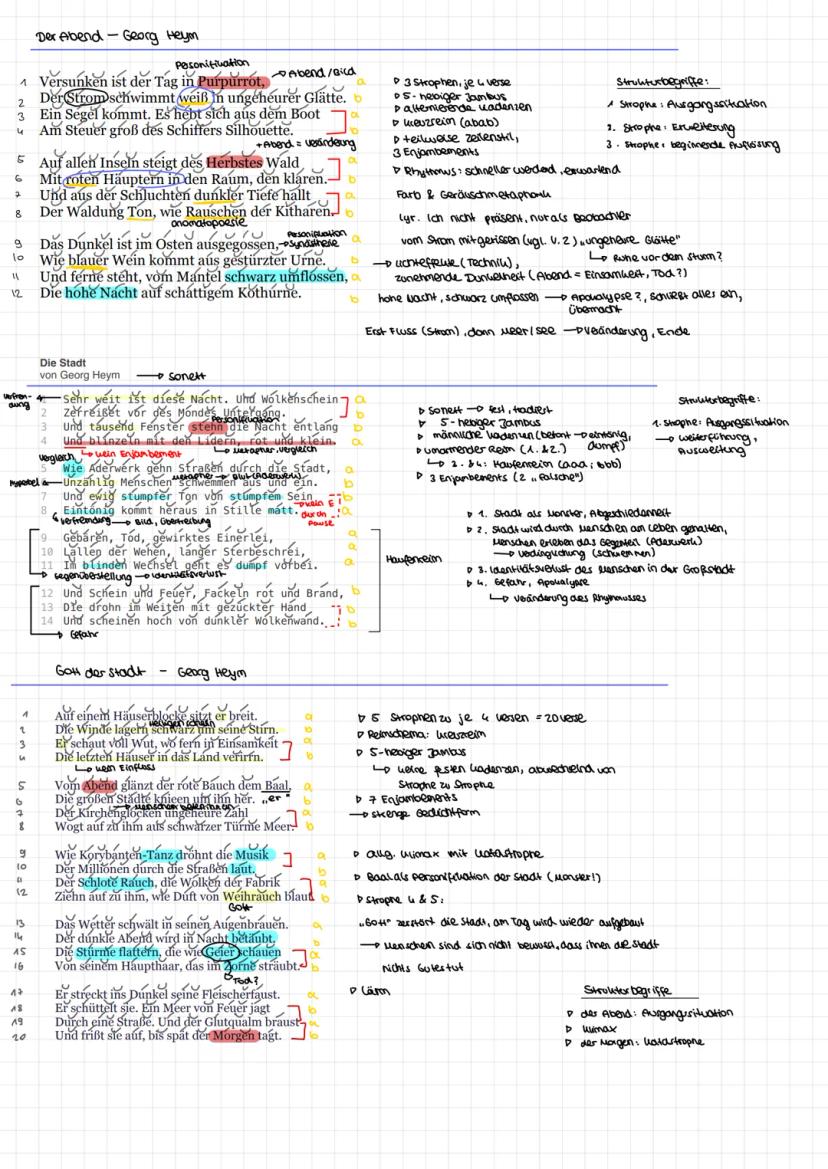 Der Abend – Georg Heym
Personifikation
1 Versunken ist der Tag in Purpurrot, → Abend/Bild a
2 Der Strom schwimmt weiß in ungeheurer Glätte. b
3 Ein Segel kommt. Es hebt sich aus dem Boot a
4 Am Steuer groß des Schiffers Silhouette. b
+ Abend = Veränderung
5 Auf allen Inseln steigt des Herbstes Wald a
6 Mit roten Häuptern in den Raum, den klaren. b
7 Und aus der Schluchten dunkler Tiefe hallt a
8 Der Waldung Ton, wie Rauschen der Kitharen. b
onomatopoesie
Personifikation
9 Das Dunkel ist im Osten ausgegossen, → Synästhesie a
10 Wie blauer Wein kommt aus gestürzter Urne. b
11 Und ferne steht, vom Mantel schwarz umflossen, a
12 Die hohe Nacht auf schattigem Kothurne. b
▷ 3 Strophen, je 4 Verse
▷ 5-hebiger Jambus
▷ alternierende Kadenzen
▷ Kreuzreim (abab)
▷ teilweise Zeilenstil,
3 Enjambements
▷ Rhythmus: schneller werdend, erwartend
Farb & Geräuschmetaphorik
lyr. Ich nicht präsent, nur als Beobachter
vom Strom mitgerissen (vgl. V. 2) „ungeheure Glätte"
↳ Ruhe vor dem Sturm?
→ Lichteffekte (Technik),
zunehmende Dunkelheit (Abend = Einsamkeit, Tod?)
hohe Nacht, schwarz umflossen → Apokalypse?, schließt alles ein,
Übermacht
Erst Fluss (Strom), dann Meer/See → Veränderung, Ende
Strukturbegriffe:
1 Strophe: Ausgangssituation
2. Strophe: Erweiterung
3. Strophe: beginnende Auflösung
Die Stadt
von Georg Heym → Sonett
Verfremdung
1 Sehr weit ist diese Nacht. Und Wolkenschein a
2 Zerreißet vor des Mondes Untergang. b
Personifikation
3 Und tausend Fenster stehn die Nacht entlang b
4 Und blinzeln mit den Lidern, rot und klein. a
Vergleich ↳ kein Enjambement ↳ Metapher, Vergleich
5 Wie Aderwerk gehn Straßen durch die Stadt, a
Metapher → Blut (Aderwerk)
Hyperbel 6 Unzählig Menschen schwemmen aus und ein. b
7 Und ewig stumpfer Ton von stumpfem Sein b
8 Eintönig kommt heraus in Stille matt. a
→ kein E durch Pause
↳ Verfremdung → Bild, Übertreibung
9 Gebären, Tod, gewirktes Einerlei, a
10 Lallen der Wehen, langer Sterbeschrei, a
11 Im blinden Wechsel geht es dumpf vorbei. a
→ Gegenüberstellung → Identitätsverlust
12 Und Schein und Feuer, Fackeln rot und Brand, b
13 Die drohn im Weiten mit gezückter Hand b
14 Und scheinen hoch von dunkler Wolkenwand. b
→ Gefahr
Haufenreim
▷ Sonett → fest, tradiert
▷ 5-hebiger Jambus
▷ männliche Kadenzen (betont → eintönig,
dumpf)
▷ umarmender Reim (1. & 2.)
↳ 3. & 4: Haufenreim (aaa; bbb)
▷ 3 Enjambements (2 „falsche")
▷ 1. Stadt als Monster, Abgeschiedenheit
▷ 2. Stadt wird durch Menschen am Leben gehalten,
Menschen erleben das Gegenteil (Aderwerk)
→ Verdinglichung (schwemmen)
▷ 3. Identitätsverlust des Menschen in der Großstadt
▷ 4. Gefahr, Apokalypse
↳ Veränderung des Rhythmusses
Strukturbegriffe:
1. Strophe: Ausgangssituation
→ Weiterführung,
Ausweitung
Gott der Stadt – Georg Heym
1 Auf einem Häuserblocke sitzt er breit. a
Heiligenschein
2 Die Winde lagern schwarz um seine Stirn. b
3 Er schaut voll Wut, wo fern in Einsamkeit a
4 Die letzten Häuser in das Land verirrn. b
↳ kein Einfluss
5 Vom Abend glänzt der rote Bauch dem Baal, a
6 Die großen Städte knieen um ihn her. „er" b
7 Der Kirchenglocken ungeheure Zahl a
8 Wogt auf zu ihm aus schwarzer Türme Meer. b
9 Wie Korybanten-Tanz dröhnt die Musik a
10 Der Millionen durch die Straßen laut. b
11 Der Schlote Rauch, die Wolken der Fabrik a
12 Ziehn auf zu ihm, wie Duft von Weihrauch blaut. b
Gott
13 Das Wetter schwält in seinen Augenbrauen. a
14 Der dunkle Abend wird in Nacht betäubt. b
15 Die Stürme flattern, die wie Geier schauen a
16 Von seinem Haupthaar, das im Zorne sträubt. b
↳ Tod?
17 Er streckt ins Dunkel seine Fleischerfaust. a
18 Er schüttelt sie. Ein Meer von Feuer jagt b
19 Durch eine Straße. Und der Glutqualm braust a
20 Und frißt sie auf, bis spät der Morgen tagt. b
▷ 5 Strophen zu je 4 Versen = 20 Verse
▷ Reimschema: Kreuzreim
▷ 5-hebiger Jambus
↳ keine festen Kadenzen, abwechselnd von
Strophe zu Strophe
▷ 7 Enjambements
→ strenge Gedichtform
▷ allg. Klimax mit Katastrophe
▷ Baal als Personifikation der Stadt (Monster!)
▷ Strophe 4 & 5:
„Gott" zerstört die Stadt, am Tag wird wieder aufgebaut
→ Menschen sind sich nicht bewusst, dass ihnen die Stadt
nichts Gutes tut
▷ Lärm
Strukturbegriffe
▷ der Abend: Ausgangssituation
▷ Klimax
▷ der Morgen: Katastrophe